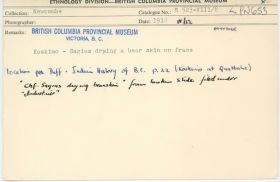 ETHNOLOGY DIVISION—BRITISH COLUMBIA PROVINCIAL MUSEUM
Collection Newcombe
Catalogue No.
Photographer
Date 1912
Remarks:
BRITISH COLUMBIA PROVINCIAL MUSEUM
VICTORIA, B. C.
Koskimo - Sarius drying a bear skin on frame
location per Duff - Indian History of B.C. p. 22 (Koskimo at Quatsino)
"Chf. Sayres drying bearskin" from lantern slide filed under
"Industries"